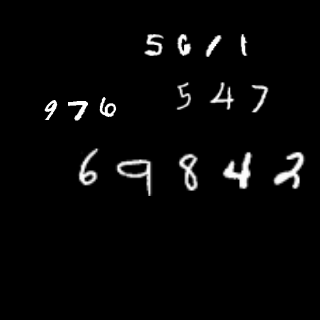 5 6 1 1
9 7 6
5 4 7
6 9 8 4 2